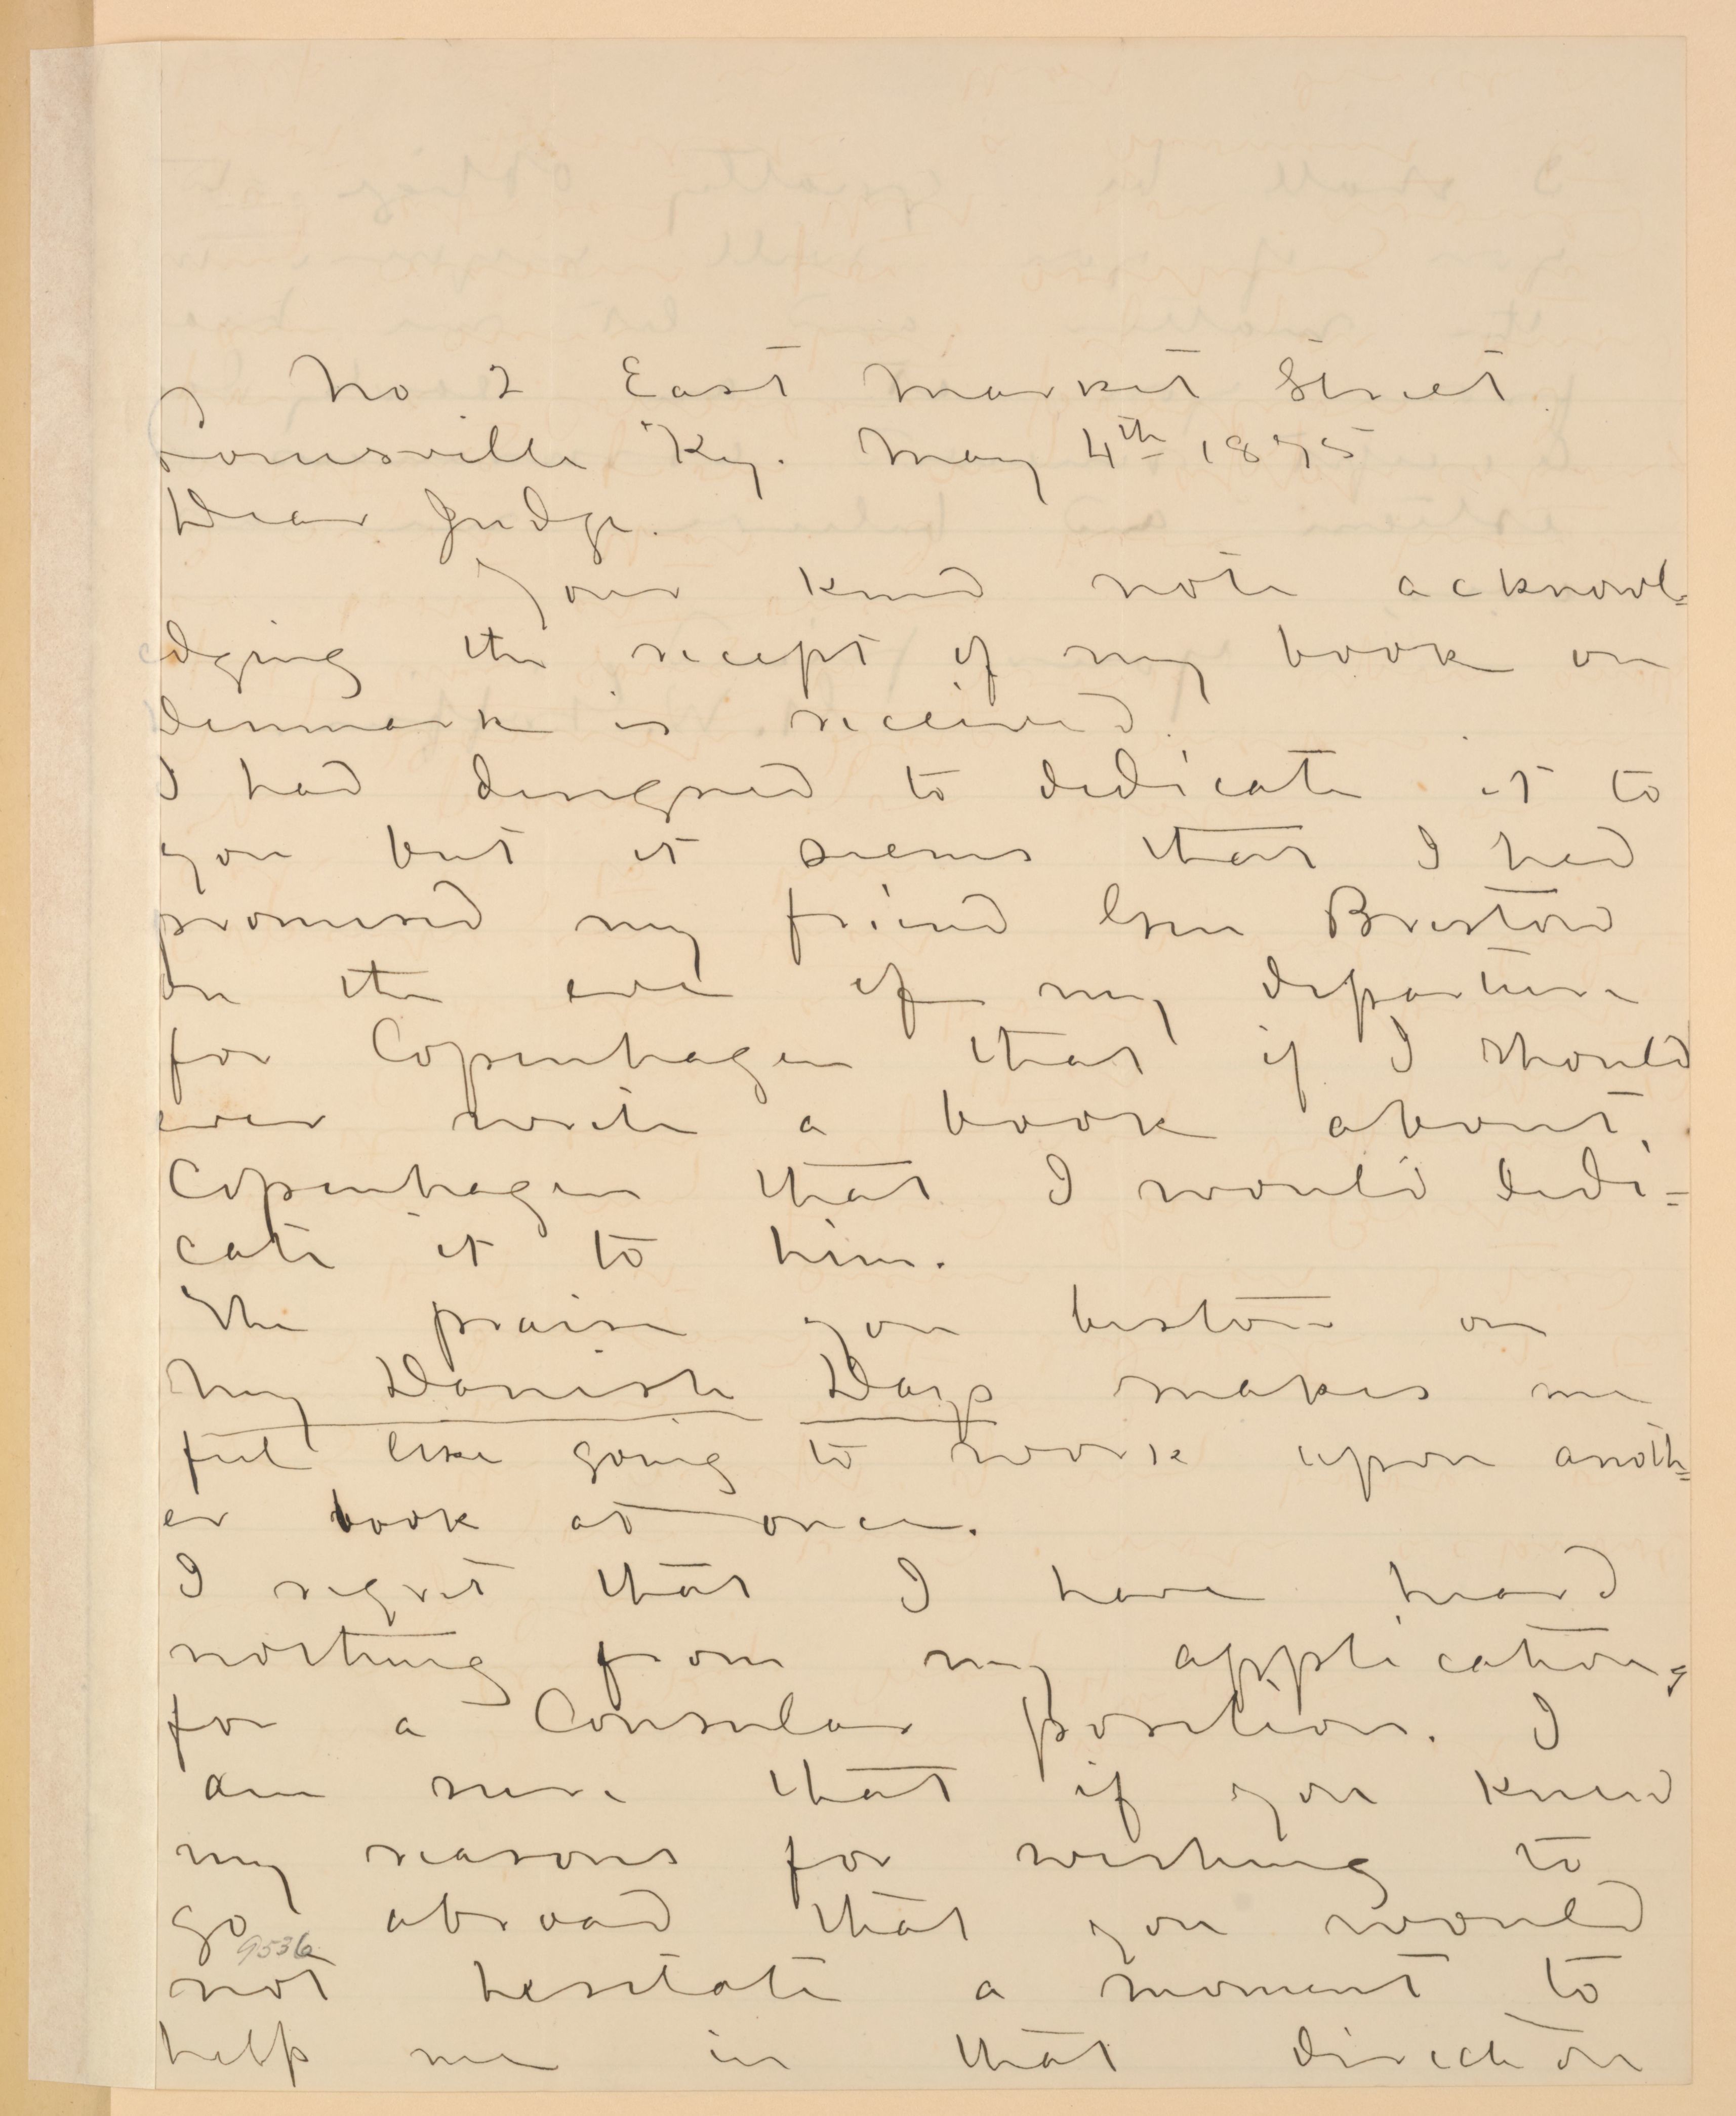 No 2 East Market Street
Louisville Ky. May 4th 1875
Dear Judge.
Your kind note acknowl=
edging the receipt of my book on
Denmark is received.
I had designed to dedicate it to
you but it seems that I had
promised my friend Gen Bristow
on the eve of my departure
for Copenhagen that if I should
ever write a book about,
Copenhagen that I would dedi=
cate it to him.
The praise you bestow on
my Danish Days makes me
feel like going to work upon anoth=
er book at once.
I regret that I have heard
nothing from my application,
for a Consular position. I
am sure that if you knew
my reasons for wishing to
go abroad that you would
9536
not hesitate a moment to
help me in that direction